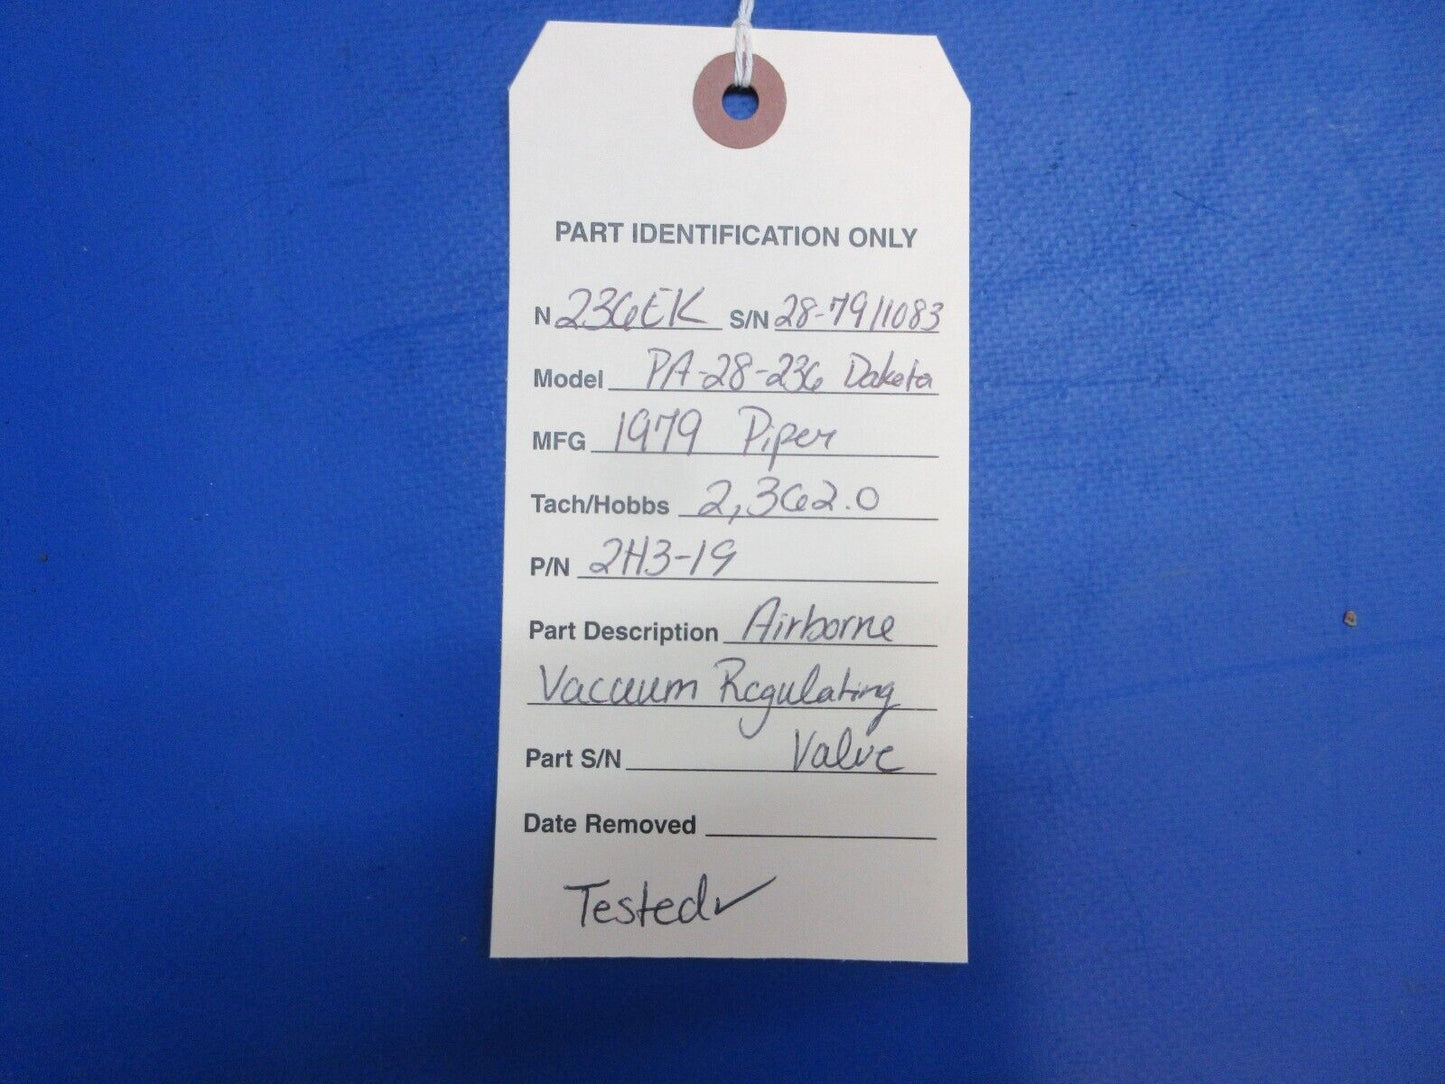 PART IDENTIFICATION ONLY
N 236EK S/N 28-7911083
Model PA-28-236 Dakota
MFG 1979 Piper
Tach/Hobbs 2,362.0
P/N 2H3-19
Part Description Airborne
Vacuum Regulating
Part S/N Valve
Date Removed
Tested✓